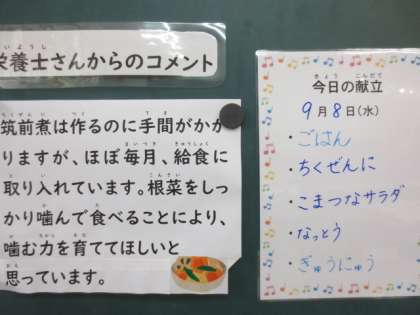 栄養士さんからのコメント
筑前煮は作るのに手間がかか
りますが、ほぼ毎月、給食に
取り入れています。根菜をしっ
かり噛んで食べることにより、
噛む力を育ててほしいと
思っています。
今日の献立
9月8日(水)
・ごはん
・ちくぜんに
・こまつなサラダ
・なっとう
・ぎゅうにゅう